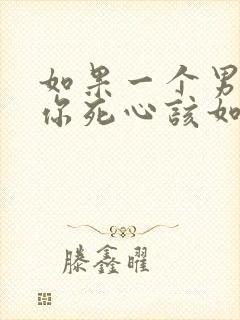 如果一个男
你死心该如
滕鑫曜